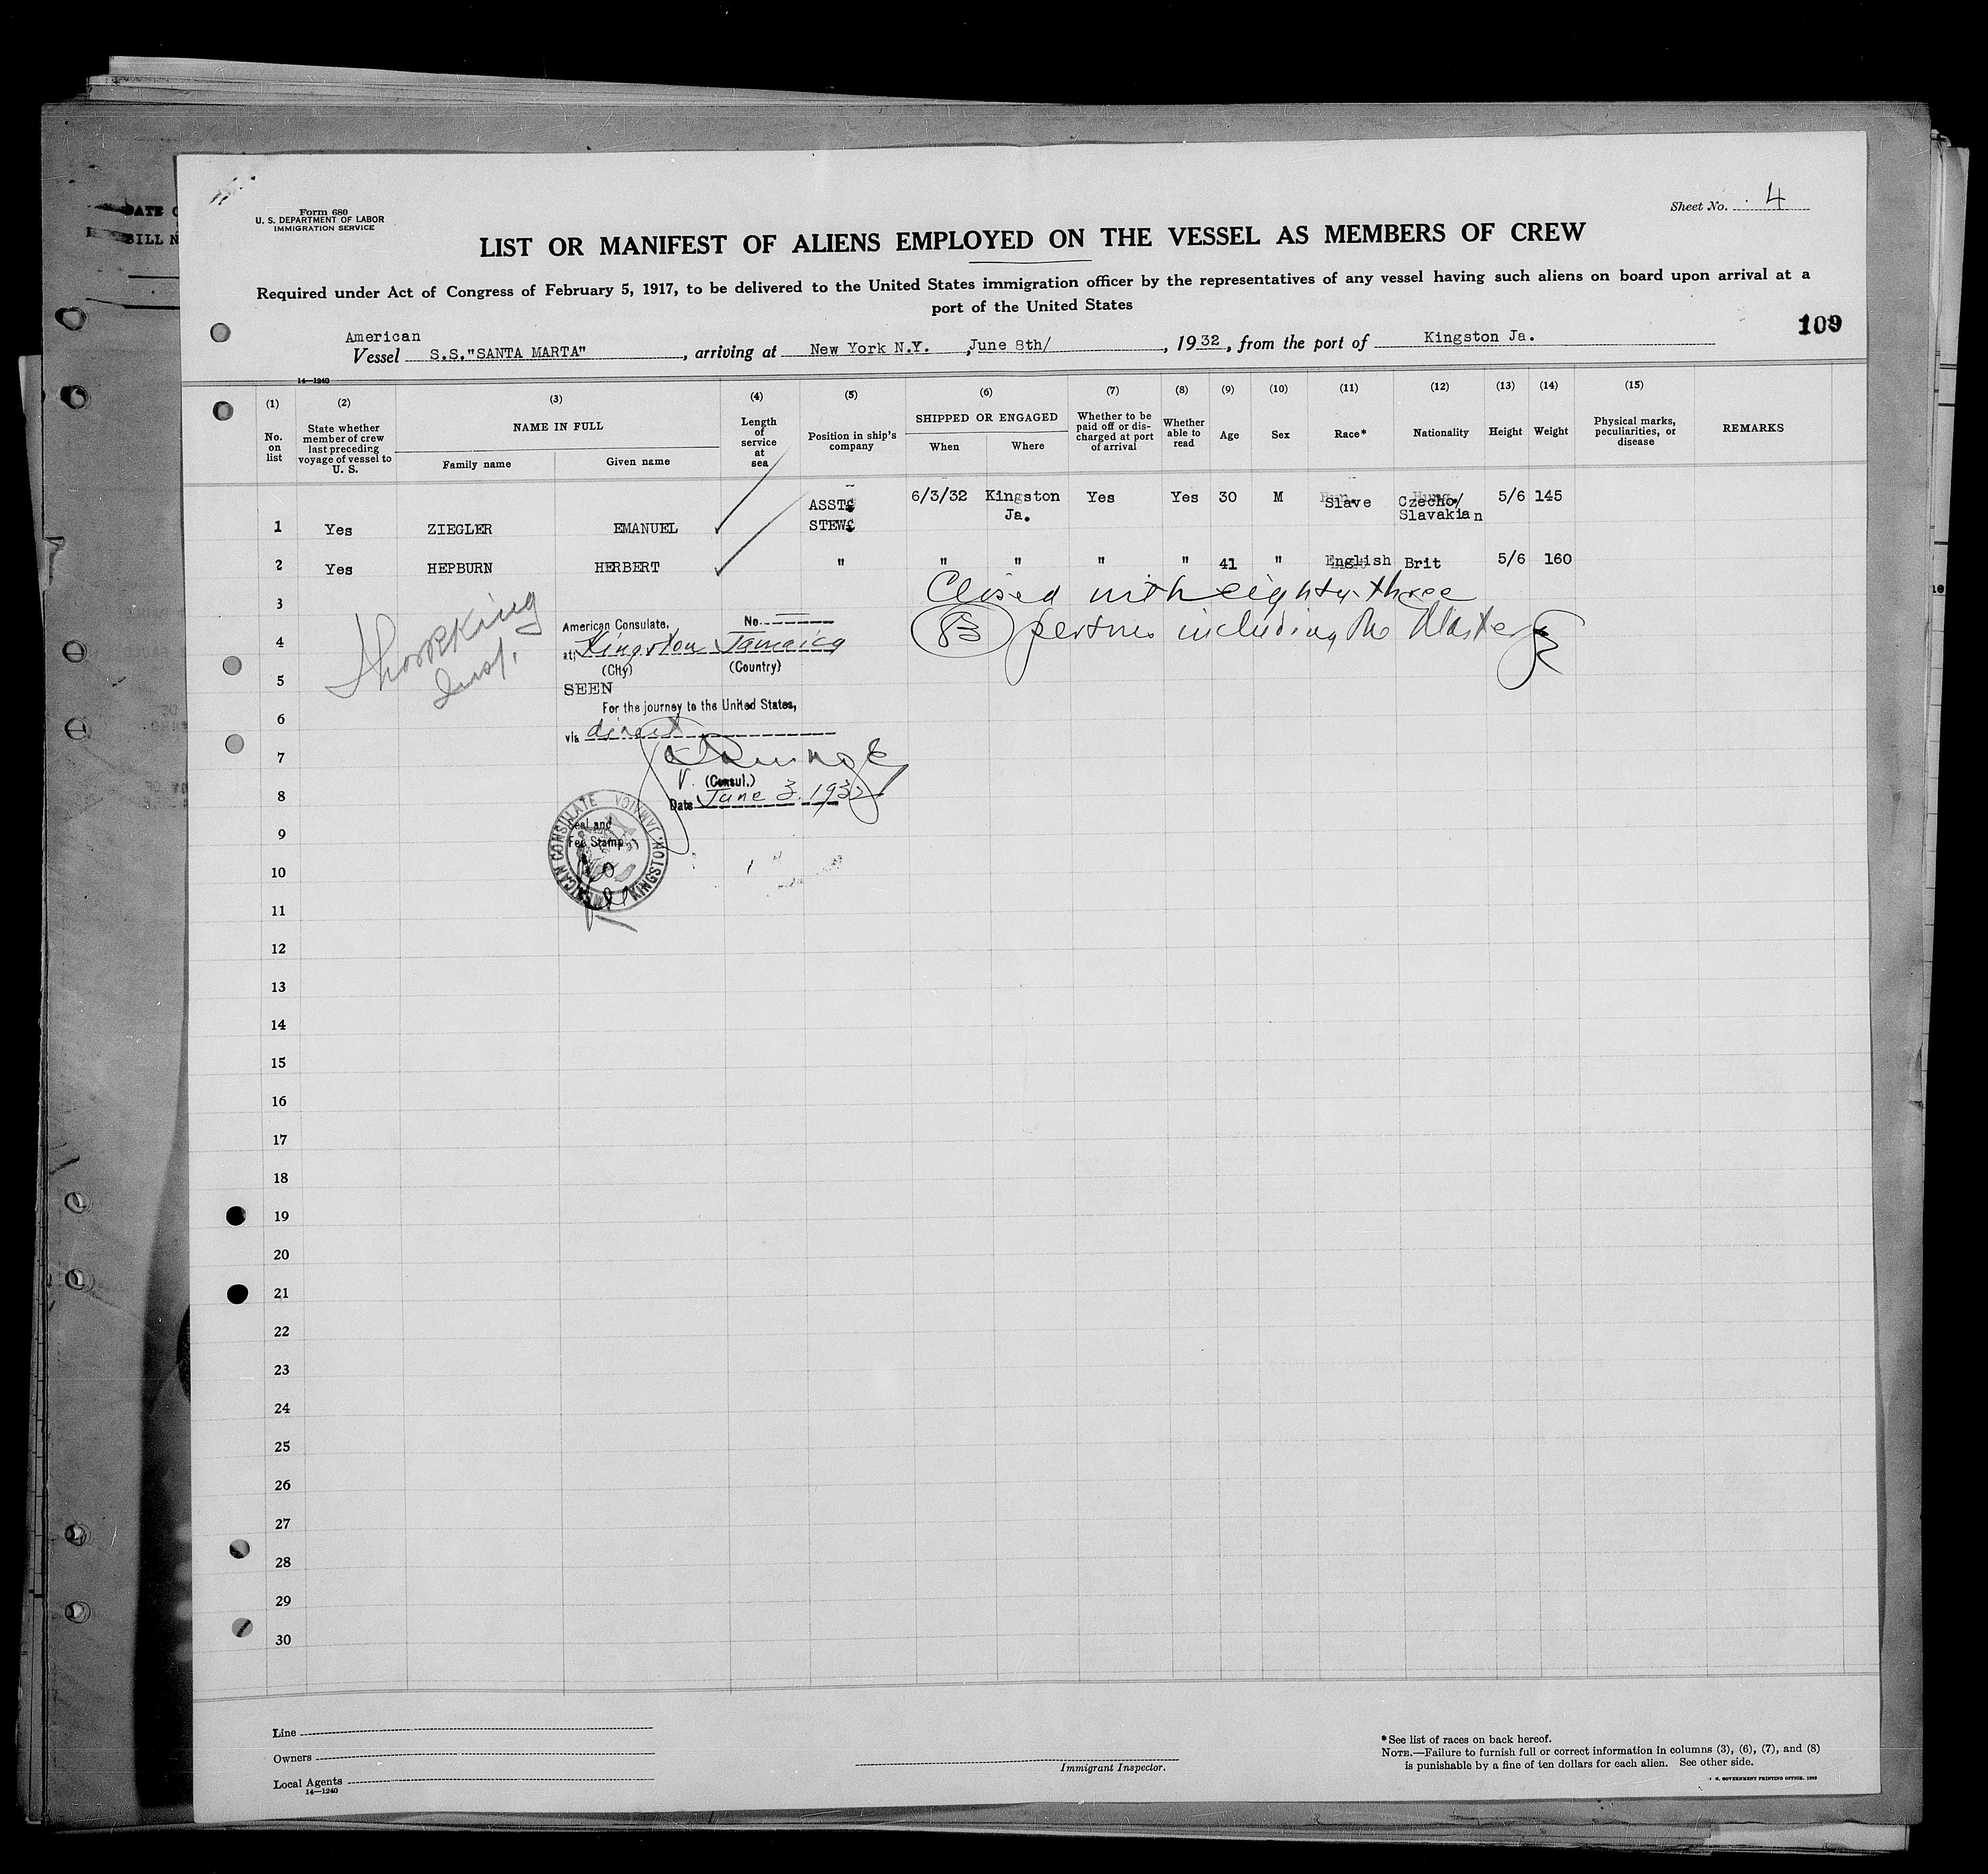 Form 680
U. S. DEPARTMENT OF LABOR
IMMIGRATION SERVICE
Sheet No. 4
LIST OR MANIFEST OF ALIENS EMPLOYED ON THE VESSEL AS MEMBERS OF CREW
Required under Act of Congress of February 5, 1917, to be delivered to the United States immigration officer by the representatives of any vessel having such aliens on board upon arrival at a
port of the United States
109
American
Vessel S.S."SANTA MARTA" , arriving at New York N.Y. ,June 8th/ , 1932, from the port of Kingston Ja.
14—1240
(1) (2) (3) (4) (5) (6) (7) (8) (9) (10) (11) (12) (13) (14) (15)
No. on list
State whether member of crew last preceding voyage of vessel to U. S.
NAME IN FULL
Family name
Given name
Length of service at sea
Position in ship's company
SHIPPED OR ENGAGED
When
Where
Whether to be paid off or discharged at port of arrival
Whether able to read
Age
Sex
Race*
Nationality
Height
Weight
Physical marks, peculiarities, or disease
REMARKS
1 Yes ZIEGLER EMANUEL ASST STEW 6/3/32 Kingston Ja. Yes Yes 30 M Slave Czecho/ Slavakian 5/6 145
2 Yes HEPBURN HERBERT " " " " " 41 " English Brit 5/6 160
3
Closed with eighty-three
4
83 persons including the Master
5
6
7
8
9
10
11
12
13
14
15
16
17
18
19
20
21
22
23
24
25
26
27
28
29
30
Insp.
American Consulate, No.
at Kingston Jamaica
(City) (Country)
SEEN
For the journey to the United States,
via direct
V. (Consul.)
Date June 3. 1932
Seal and
Fee Stamp
AMERICAN CONSULATE KINGSTON, JAMAICA
Line
Owners
Local Agents
14—1240
Immigrant Inspector.
*See list of races on back hereof.
NOTE.—Failure to furnish full or correct information in columns (3), (6), (7), and (8)
is punishable by a fine of ten dollars for each alien. See other side.